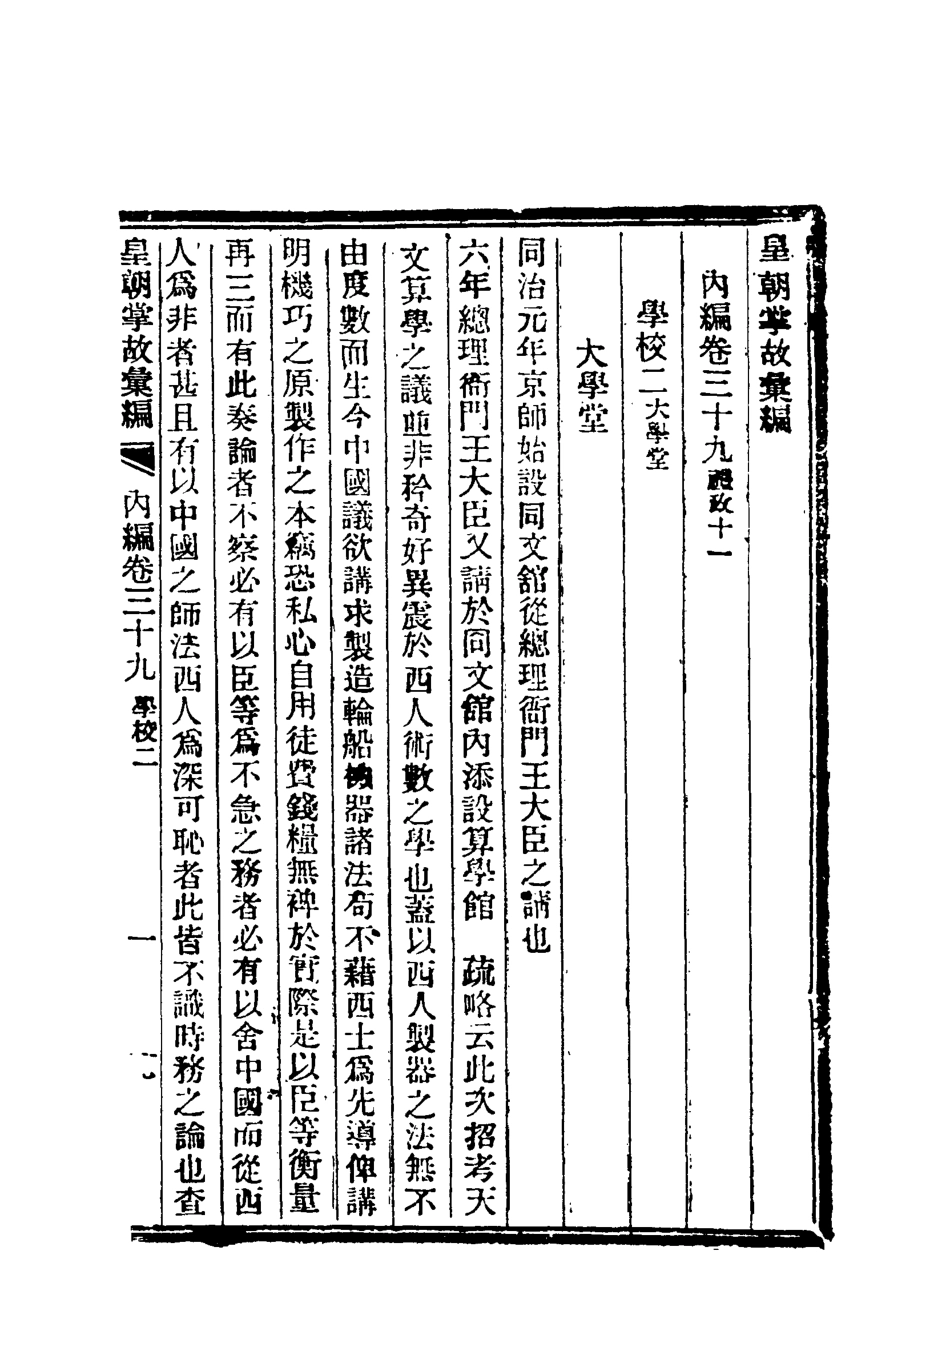 皇朝掌故彙編
內編卷三十九禮政十一
學校二大學堂
大學堂
同治元年京師始設同文舘從總理衙門王大臣之請也
六年總理衙門王大臣又請於同文館內添設算學館　疏略云此次招考天
文算學之議並非矜奇好異震於西人術數之學也蓋以西人製器之法無不
由度數而生今中國議欲講求製造輪船機器諸法苟不藉西士爲先導俾講
明機巧之原製作之本竊恐私心自用徒費錢糧無裨於實際是以臣等衡量
再三而有此奏論者不察必有以臣等爲不急之務者必有以舍中國而從西
人爲非者甚且有以中國之師法西人爲深可恥者此皆不識時務之論也查
皇朝掌故彙編　內編卷三十九　學校二　一